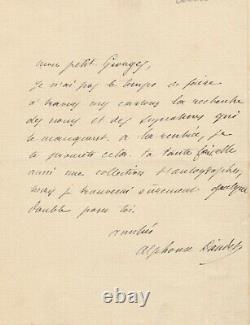 mon petit Georges,
je n'ai pas le temps de faire
à travers mes cartons la recherche
des noms et des signatures qui
te manquent. à la rentrée, je
te promets cela. ta tante
aussi une collection d'autographes,
mais j'y trouverai sûrement quelque
double pour toi.
amitiés
Alphonse Daudet
© 123-tb.com